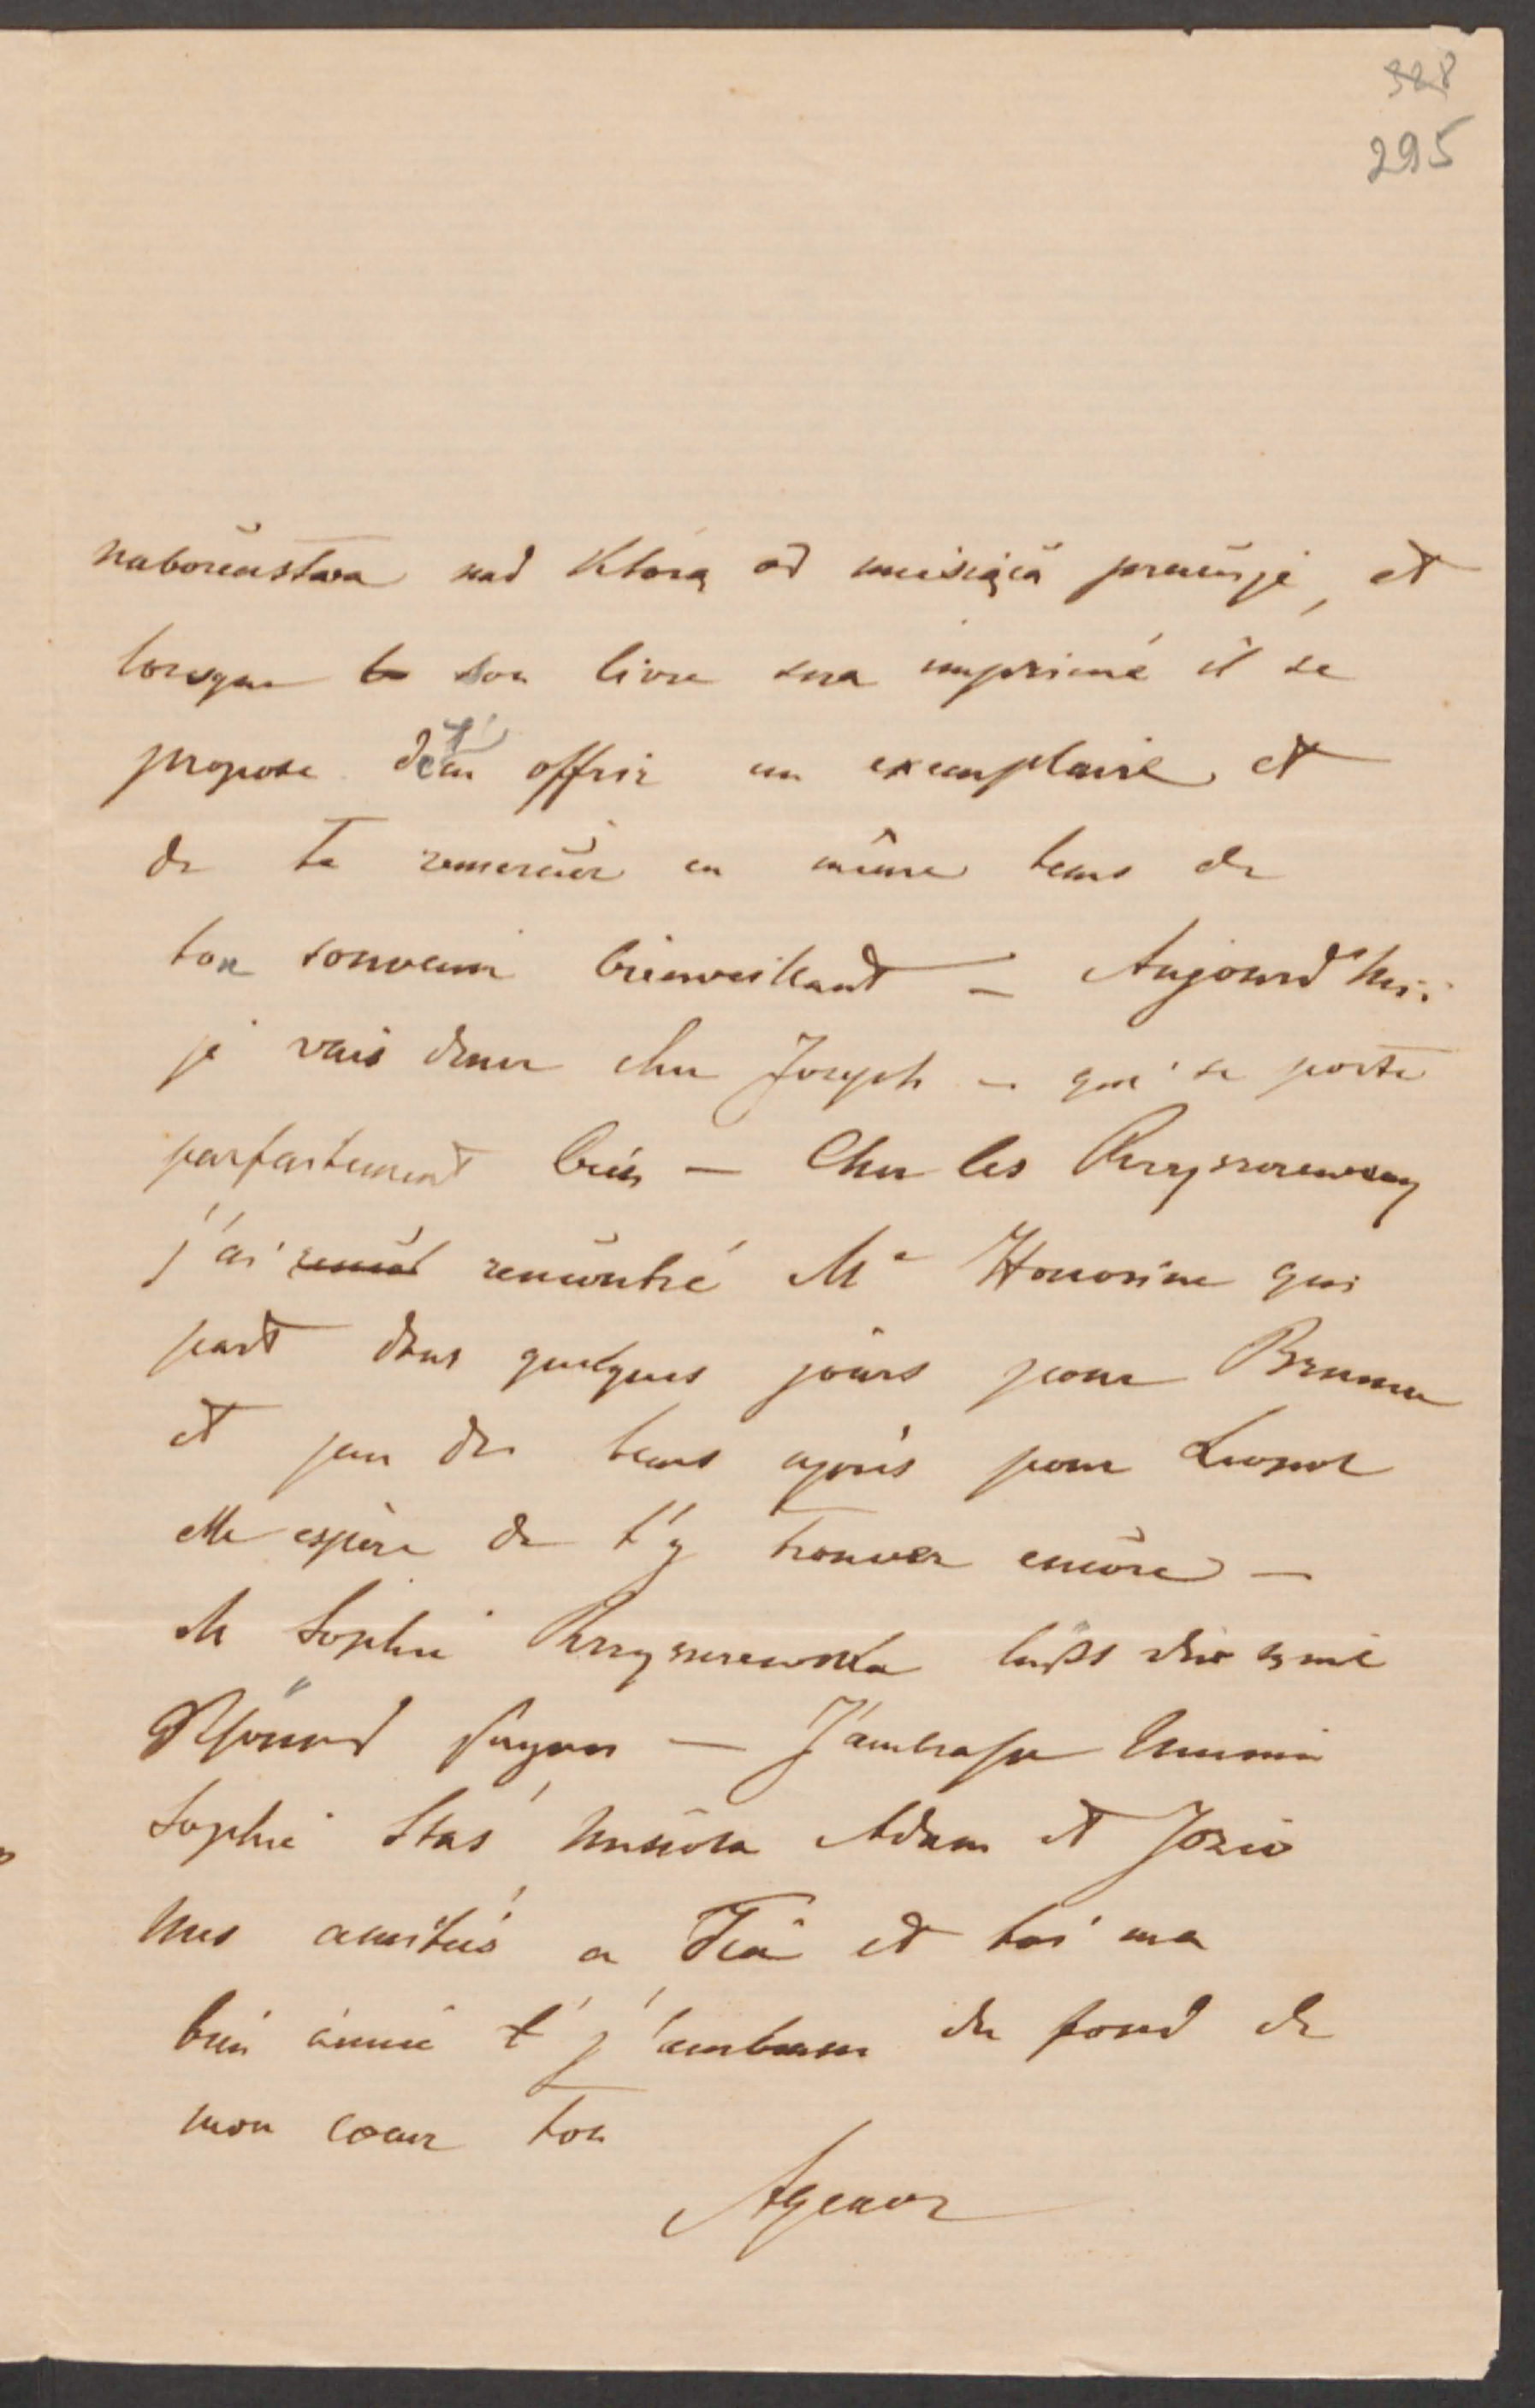 328
295
naboženstwa nad którą od miesiąca pracuje, et
lorsque son livre sera imprimé il se
propose de t'en offrir un exemplaire et
de te remercier en même tems de
ton souvenir bienveillant — Aujourd'hui
je vais diner chez Joseph — qui se porte
parfaitement bien — Chez les
j'ai rencontré Me Honorine qui
part dans quelques jours pour
et peu de tems après pour
elle espère de t'y trouver encore —
M Sophie
— J'ambrasse
Sophie Staś Adam et Józio
mes amitiés a et toi ma
bien aimée j'ambrasse du fond de
mon coeur ton
Agenor